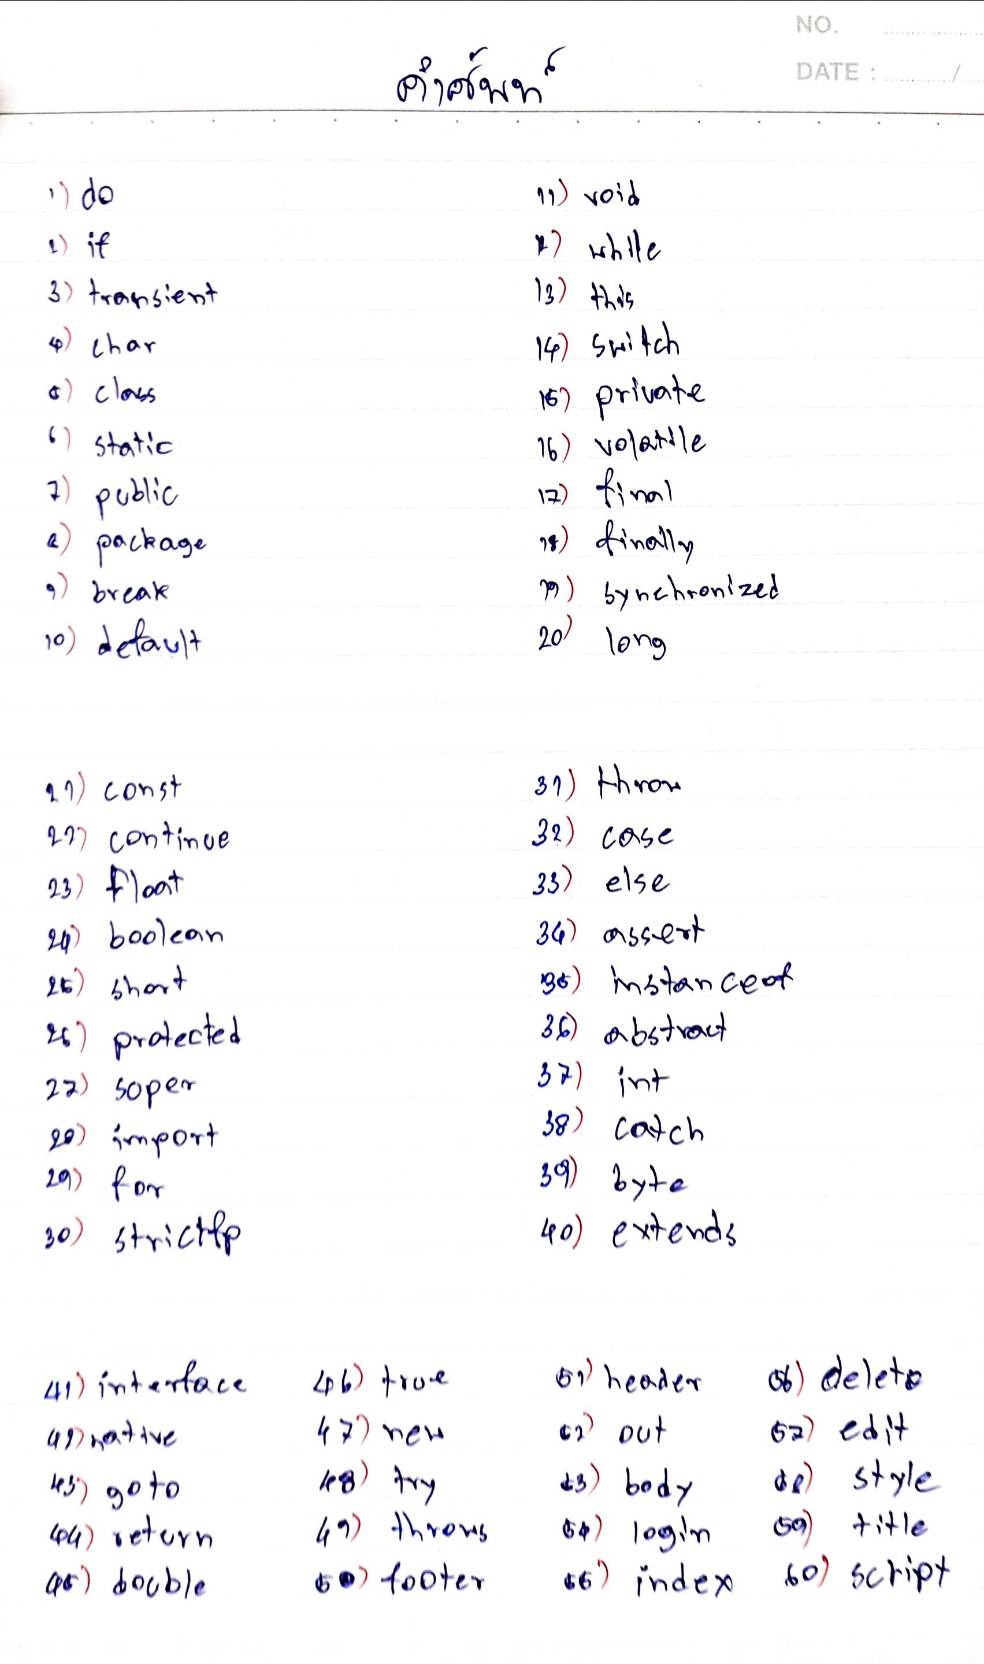 NO.
DATE : /
คำศัพท์
1) do
2) if
3) transient
4) char
5) class
6) static
7) public
8) package
9) break
10) default
11) void
12) while
13) this
14) switch
15) private
16) volatile
17) final
18) finally
19) synchronized
20) long
21) const
22) continue
23) float
24) boolean
25) short
26) protected
27) soper
28) import
29) for
30) strictfp
31) throw
32) case
33) else
34) assert
35) instanceof
36) abstract
37) int
38) catch
39) byte
40) extends
41) interface
42) native
43) goto
44) return
45) double
46) true
47) new
48) try
49) throws
50) footer
51) header
52) out
53) body
54) login
55) index
56) delete
57) edit
58) style
59) title
60) script